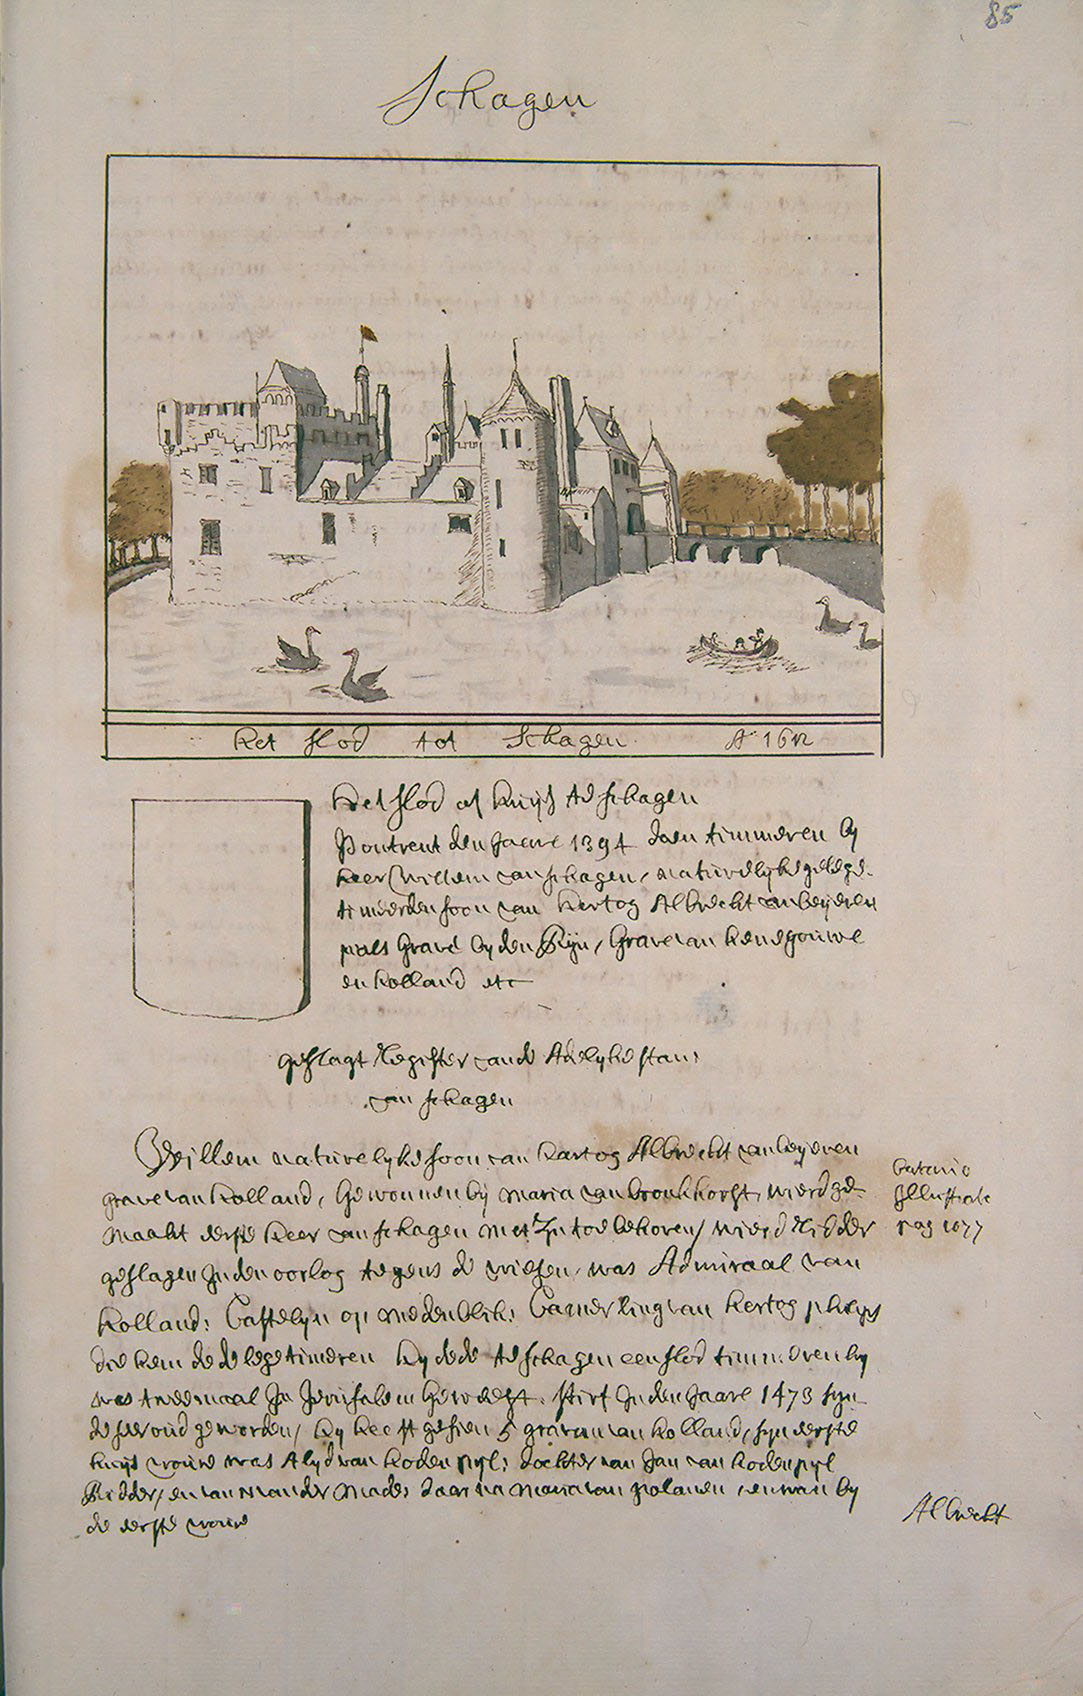 85
Schagen
Het slod tot Schagen. Aº 1612
Het slod of huijs te schagen
is ontrent den Jaare 1394 doen timmeren by
heer willem van schagen, naturelyke gelege-
timeerden soon van hertog Albrecht van beijeren
pals Grave by den Rijn, Grave van henegouwe
en holland etc
geslagt Register vande Adelyke stam
van schagen
Willem naturelyke soon van hartog Albrecht van beyeren
grave van holland, Gewonnen bij maria van bronkhorst, wierd ge-
maakt eerste heer van schagen met zyn toe behoren, wierd Ridder
geslagen in den oorlog tegens de vriesen, was Admiraal van
holland: Castelyn op medenblik: Camerling van hertog philips
die hem dede legetimeren hy dede te schagen een slod timmeren hy
was tweemaal In Jerusalem Geweest. stirf In den Jaare 1473 syn-
de seer oud geworden, hy heeft gesien 5 graven van holland, syn eerste
huijs vrouw was Alyd van hodenpyl: dochter van Jan van hodenpyl
Ridder, en van vrou der made: daar na maria van polanen, en wan by
de eerste vrouw
batavia
Illustrate
pag 1077
Albrecht